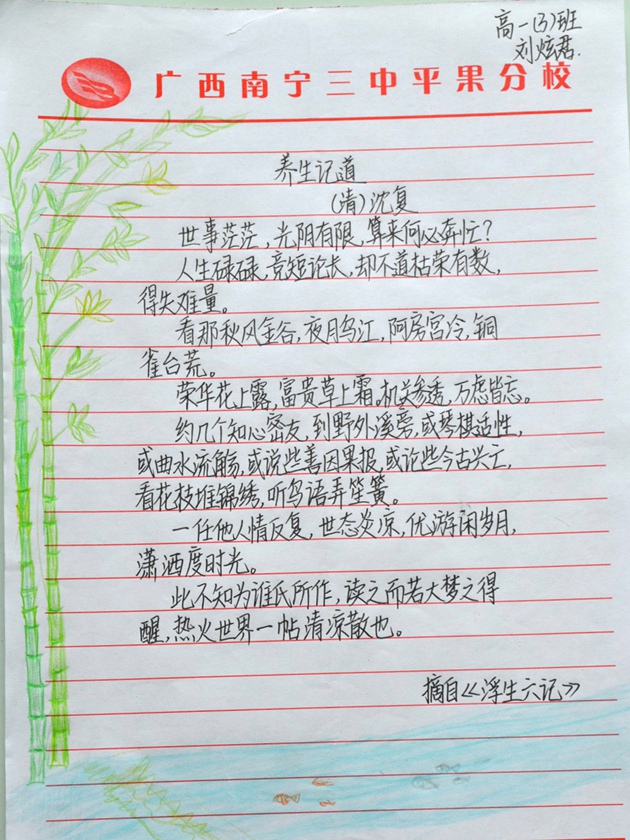 高一(3)班
刘炫君.
广西南宁三中平果分校
养生记道
(清)沈复
世事茫茫,光阴有限,算来何必奔忙?
人生碌碌,竞短论长,却不道枯荣有数,
得失难量。
看那秋风金谷,夜月乌江,阿房宫冷,铜
雀台荒。
荣华花上露,富贵草上霜。机关参透,万虑皆忘。
约几个知心密友,到野外溪旁,或琴棋适性,
或曲水流觞,或说些善因果报,或论些今古兴亡,
看花枝堆锦绣,听鸟语弄笙簧。
一任他人情反复,世态炎凉,优游闲岁月,
潇洒度时光。
此不知为谁氏所作,读之而若大梦之得
醒,热火世界一帖清凉散也。
摘自《浮生六记》